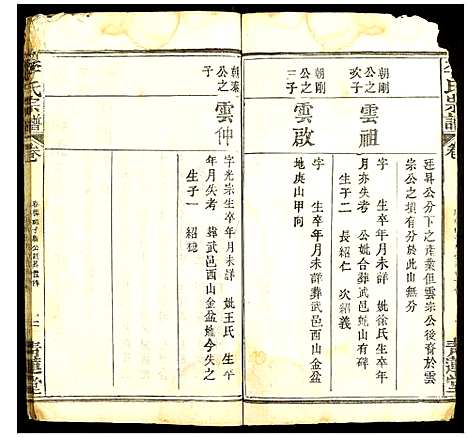 李氏宗譜
卷
青蓮堂
廷昇公分下之產業但雲宗公後裔於雲
宗公之項有分於此山無分
朝剛
公之
次子
雲祖
字 生卒年月未詳 妣徐氏生卒年
月亦失考 公妣合葬武邑西山有碑
生子二 長紹仁 次紹義
朝剛
公之
三子
雲啟
字 生卒年月未詳葬武邑西山金盆
地庚山甲向
公之
子
雲仲
字光宗生卒年月未詳 妣王氏 生卒
年月失考 葬武邑西山金盆地今失之
生子一 紹聰
李氏宗譜
卷
青蓮堂